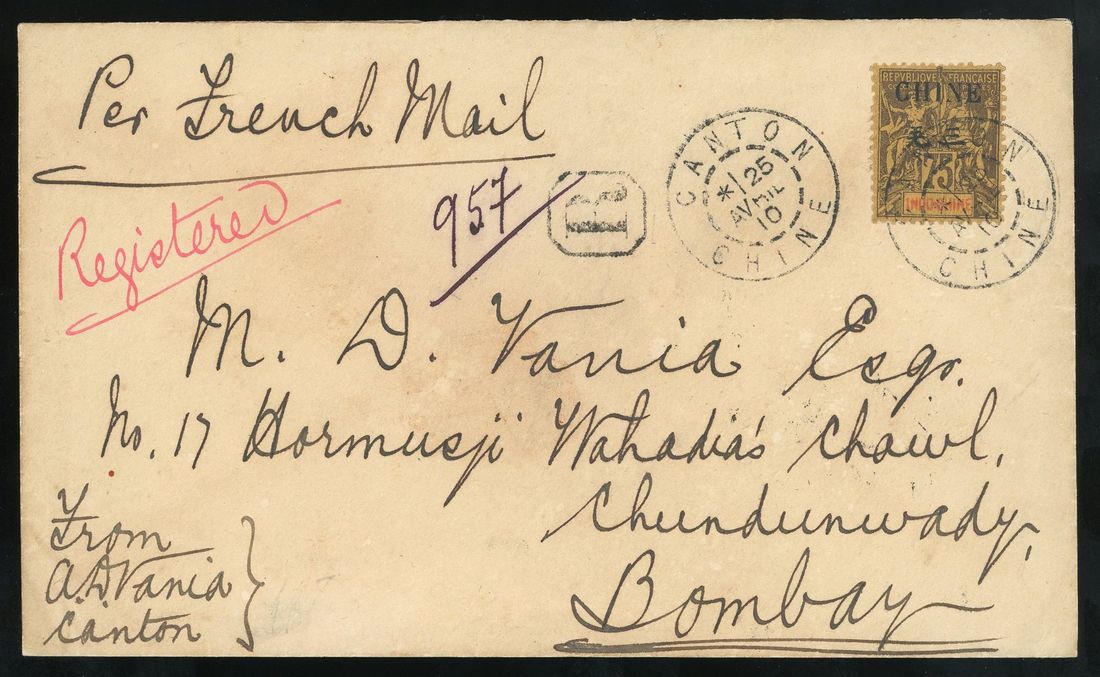 Per French Mail
REPUBLIQUE FRANCAISE
CHINE
75
INDO-CHINE
CANTON
25
AVRIL
10
CHINE
CHINE
Registered
957
R
M. D. Vania Esqr.
No. 17 Hormusji Wahadia's Chawl,
Chundunwady,
Bombay
From
A. D. Vania
Canton